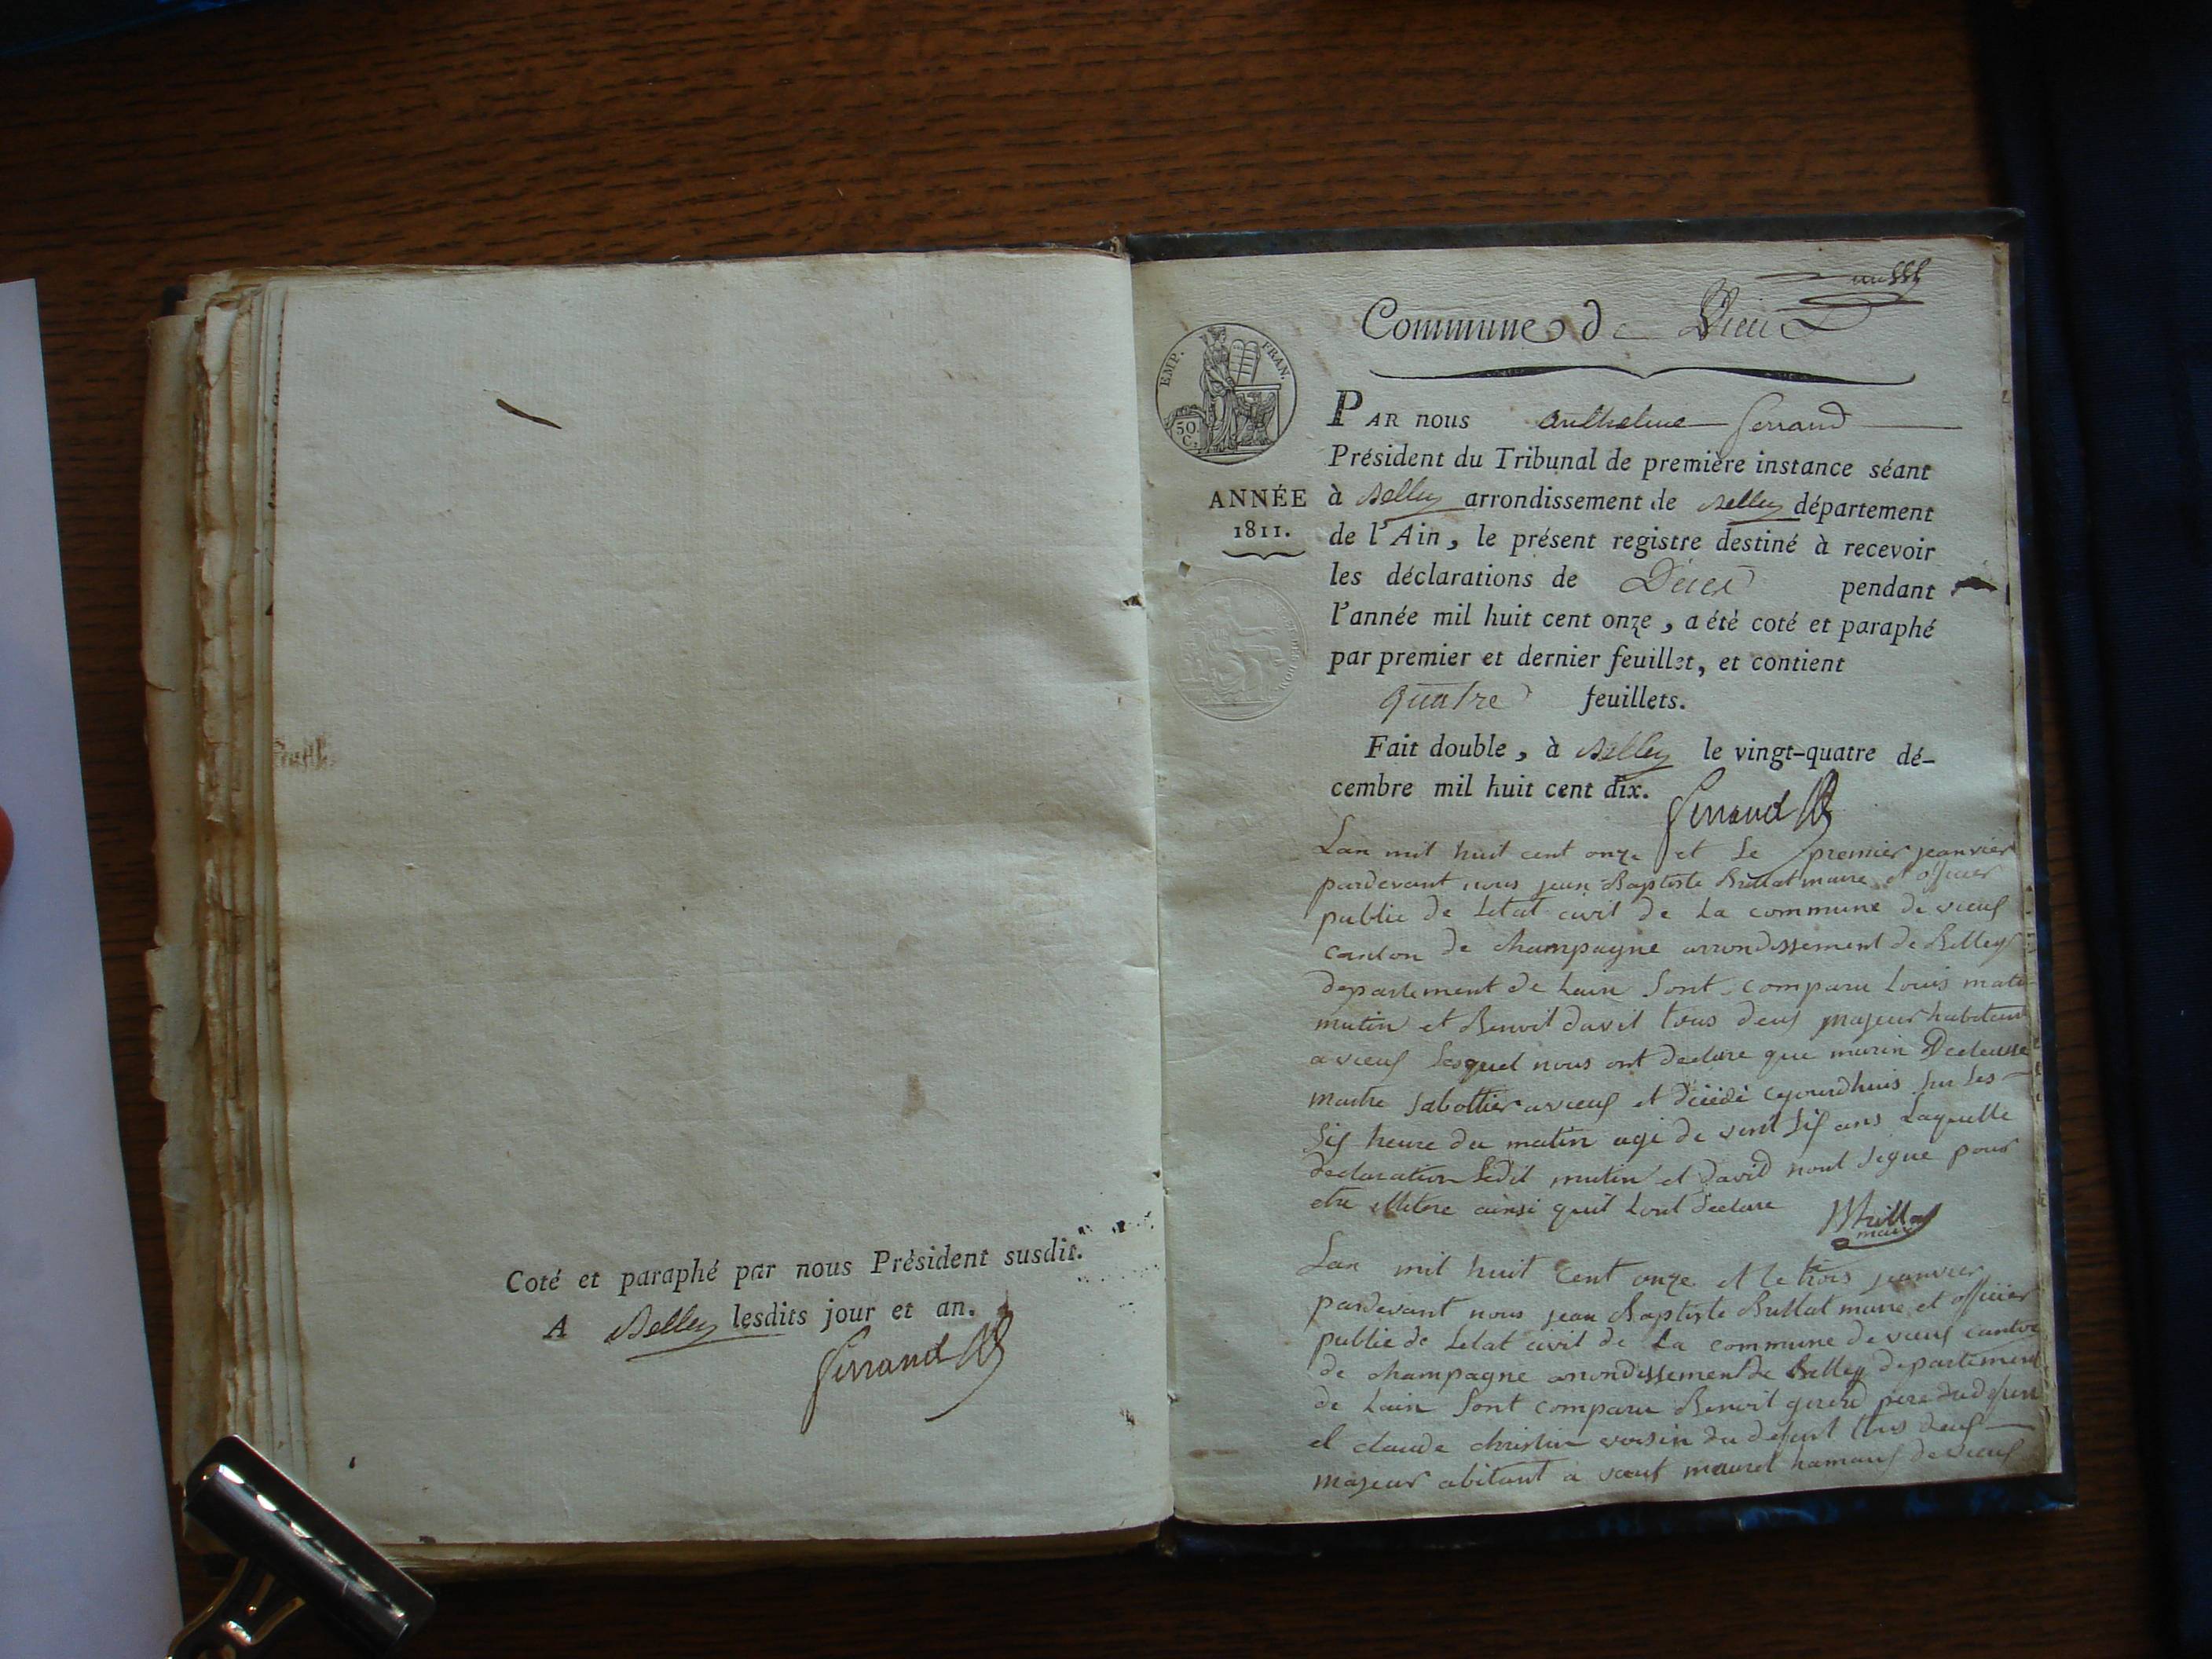 Coté et paraphé par nous Président susdit.
A Belley lesdits jour et an.
Ferrand
Commune de Vieu
EMP. FRAN.
50 C.
ANNÉE
1811.
PAR nous Anthelme Ferrand
Président du Tribunal de première instance séant
à Belley arrondissement de Belley département
de l'Ain, le présent registre destiné à recevoir
les déclarations de Décès pendant
l'année mil huit cent onze, a été coté et paraphé
par premier et dernier feuillet, et contient
quatre feuillets.
Fait double, à Belley le vingt-quatre dé-
cembre mil huit cent dix.
Ferrand
Lan mil huit cent onze et le premier jeanvier
pardevant nous jean Baptiste Brillat maire et officier
public de letat civil de la commune de vieuf
canton de champagne arrondissement de Belley
departement de lain sont comparu Louis
mutin et Benoit davit tous deuf majeur habitant
a vieuf lesquel nous ont declare que marin
maitre sabottier a vieuf et décédé cejourdhuis sur les
sif heure du matin agé de vent sif ans laquelle
declaration ledit mutin et david nont signe pour
etre ainsi quil lont declare
Brillat
maire
Lan mil huit cent onze et le trois janvier
pardevant nous jean Baptiste Brillat maire et officier
public de letat civil de la commune de vieuf canton
de champagne arrondissement de Belley departement
de lain sont comparu Benoit pere du defunt
et claude christin voisin du defunt tous deuf
majeur abitant a hamauf de vieuf